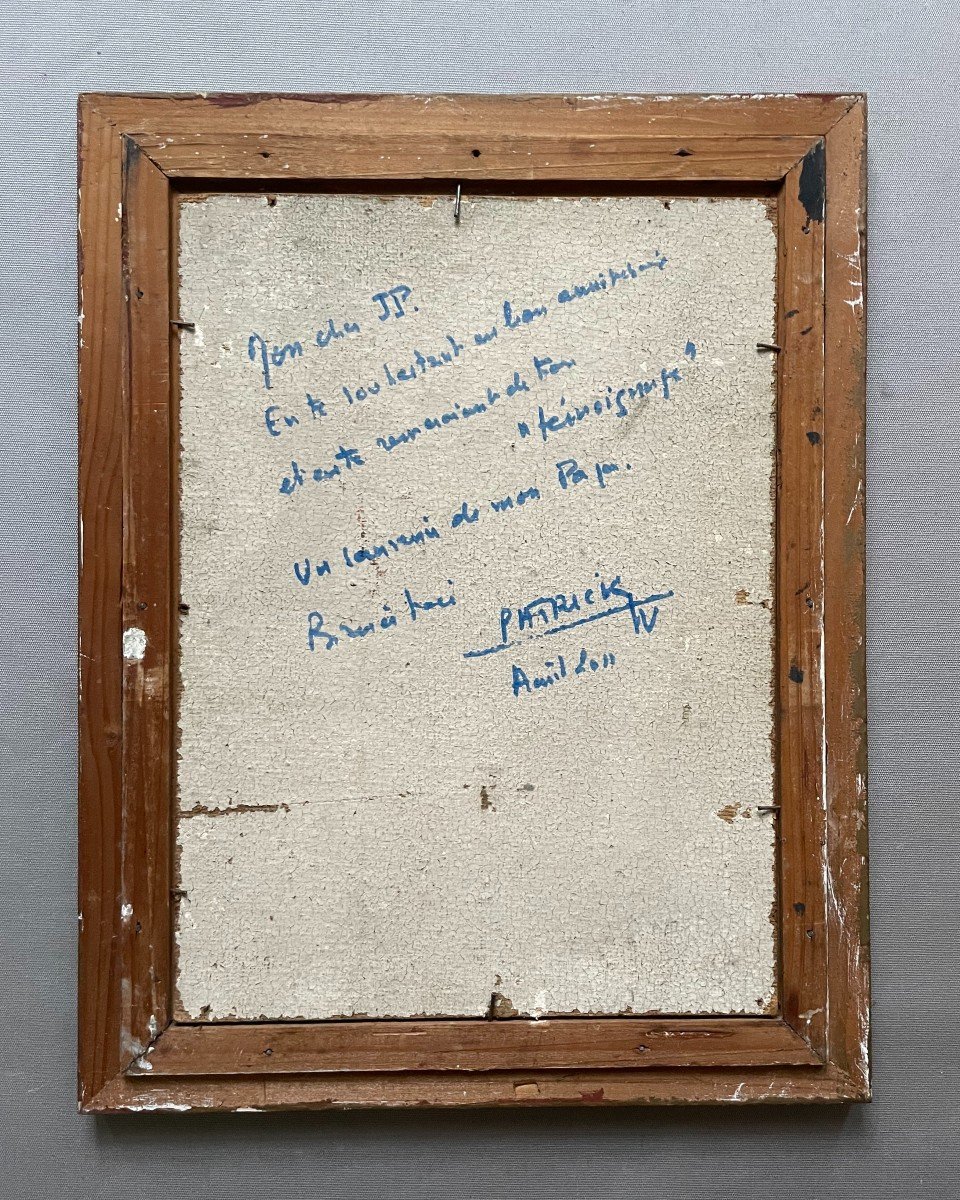 Mon cher JP.
En te souhaitant un bon anniversaire
et en te remerciant de ton
"témoignage"
Un souvenir de mon Papa.
PATRICK
Avril 2011